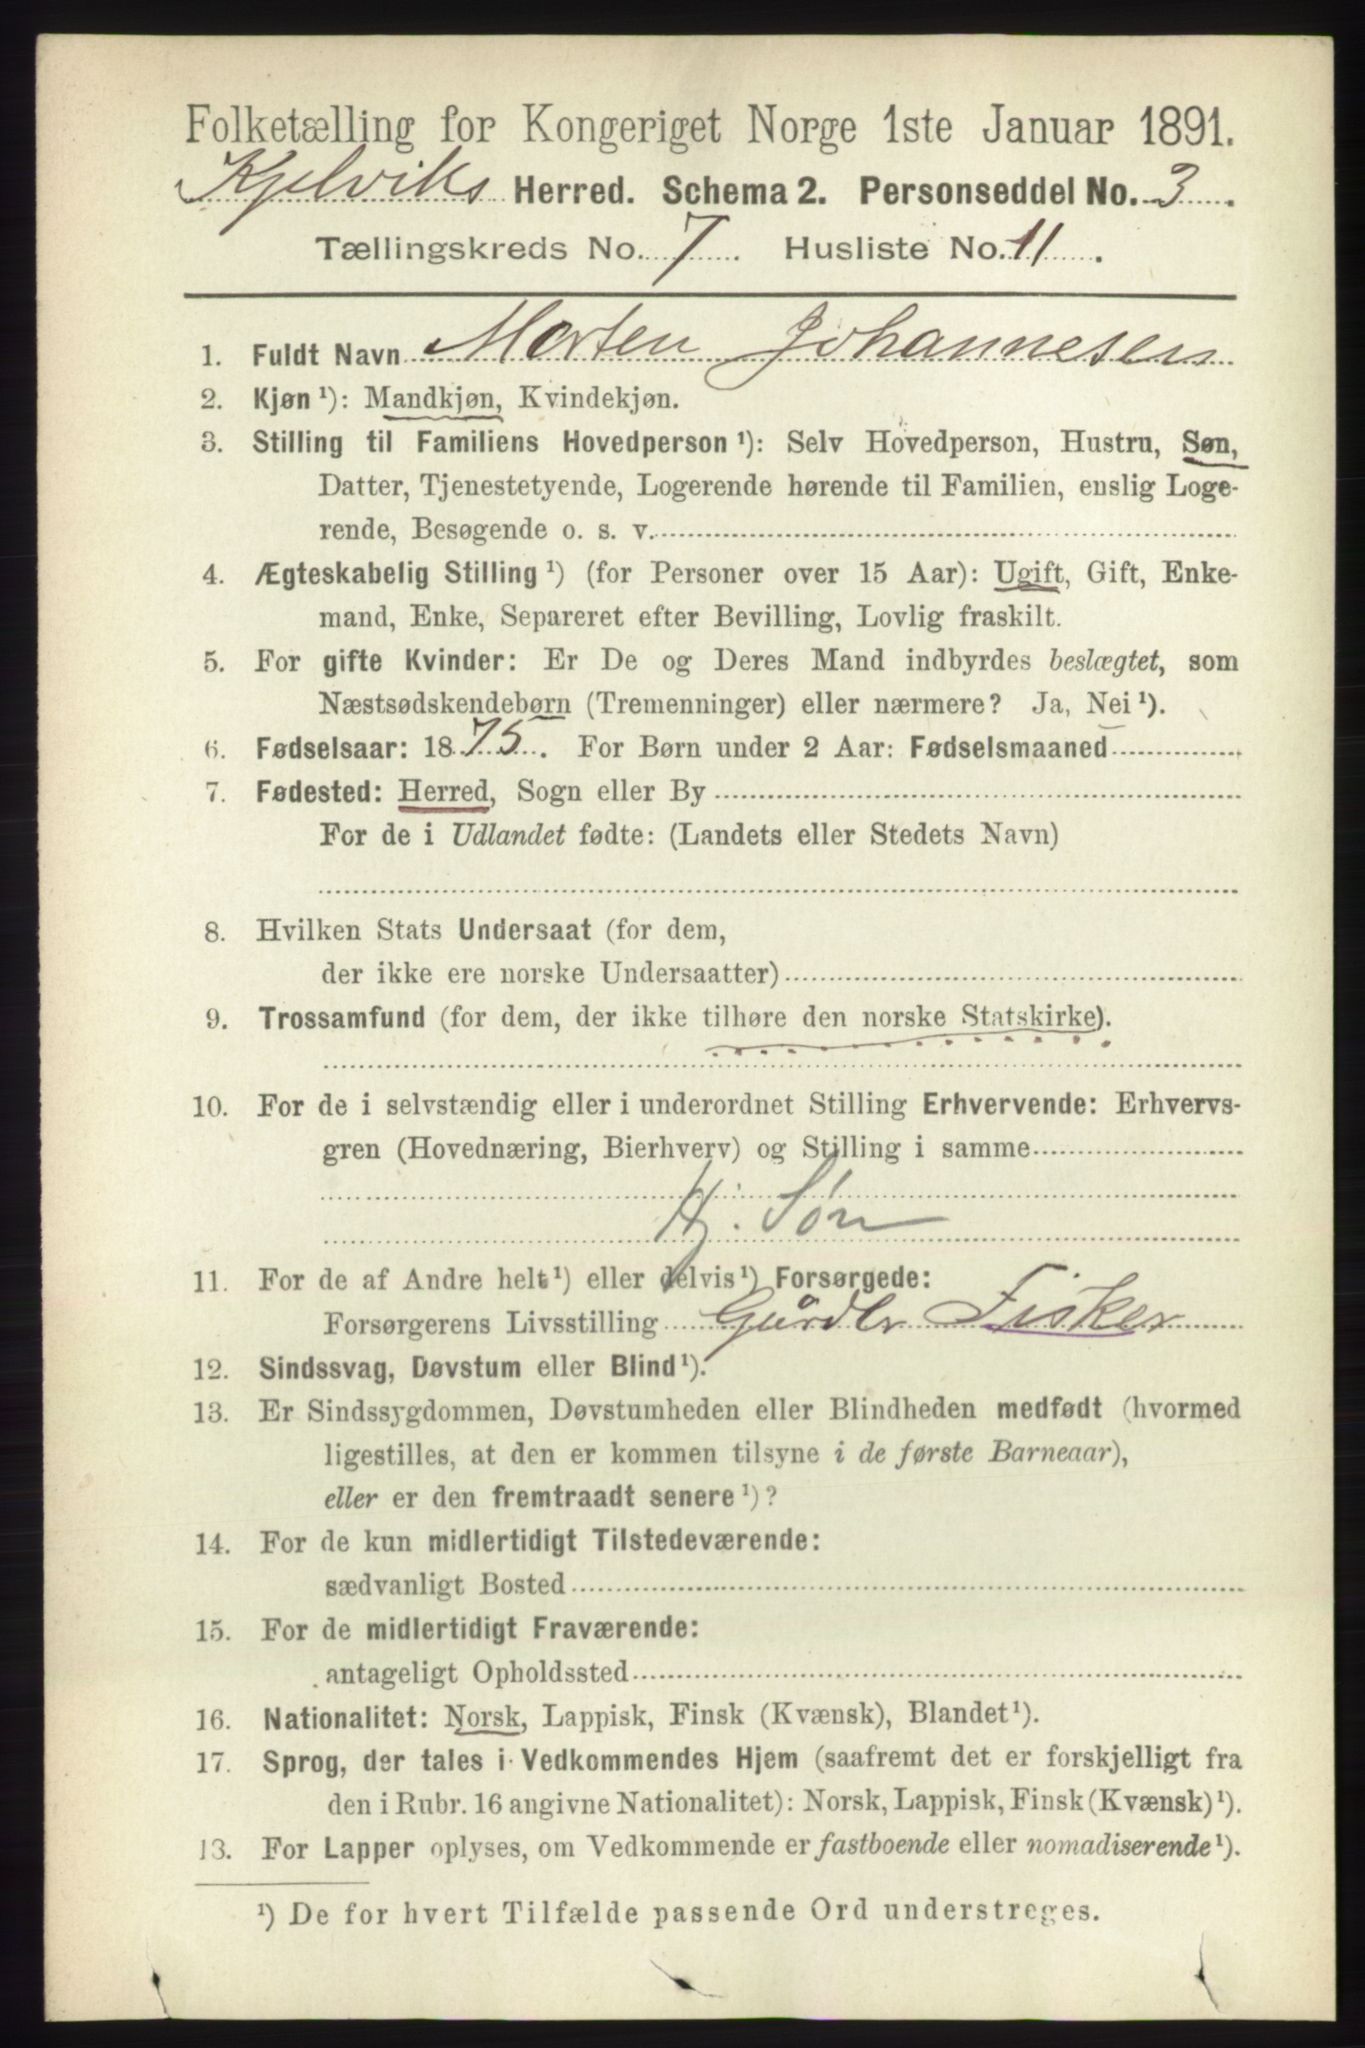 Folketælling for Kongeriget Norge 1ste Januar 1891.
Kjelviks Herred. Schema 2. Personseddel No. 3.
Tællingskreds No. 7. Husliste No. 11.
1. Fuldt Navn Morten Johannesen
2. Kjøn ¹): Mandkjøn, Kvindekjøn.
3. Stilling til Familiens Hovedperson ¹): Selv Hovedperson, Hustru, Søn,
Datter, Tjenestetyende, Logerende hørende til Familien, enslig Loge-
rende, Besøgende o. s. v.
4. Ægteskabelig Stilling ¹) (for Personer over 15 Aar): Ugift, Gift, Enke-
mand, Enke, Separeret efter Bevilling, Lovlig fraskilt.
5. For gifte Kvinder: Er De og Deres Mand indbyrdes beslægtet, som
Næstsødskendebørn (Tremenninger) eller nærmere? Ja, Nei ¹).
6. Fødselsaar: 1875. For Børn under 2 Aar: Fødselsmaaned
7. Fødested: Herred, Sogn eller By
For de i Udlandet fødte: (Landets eller Stedets Navn)
8. Hvilken Stats Undersaat (for dem,
der ikke ere norske Undersaatter)
9. Trossamfund (for dem, der ikke tilhøre den norske Statskirke).
10. For de i selvstændig eller i underordnet Stilling Erhvervende: Erhvervs-
gren (Hovednæring, Bierhverv) og Stilling i samme
Hj. Søn
11. For de af Andre helt ¹) eller delvis ¹) Forsørgede:
Forsørgerens Livsstilling Gårdbr Fisker
12. Sindssvag, Døvstum eller Blind ¹).
13. Er Sindssygdommen, Døvstumheden eller Blindheden medfødt (hvormed
ligestilles, at den er kommen tilsyne i de første Barneaar),
eller er den fremtraadt senere ¹)?
14. For de kun midlertidigt Tilstedeværende:
sædvanligt Bosted
15. For de midlertidigt Fraværende:
antageligt Opholdssted
16. Nationalitet: Norsk, Lappisk, Finsk (Kvænsk), Blandet ¹).
17. Sprog, der tales i Vedkommendes Hjem (saafremt det er forskjelligt fra
den i Rubr. 16 angivne Nationalitet): Norsk, Lappisk, Finsk (Kvænsk) ¹).
13. For Lapper oplyses, om Vedkommende er fastboende eller nomadiserende ¹).
¹) De for hvert Tilfælde passende Ord understreges.